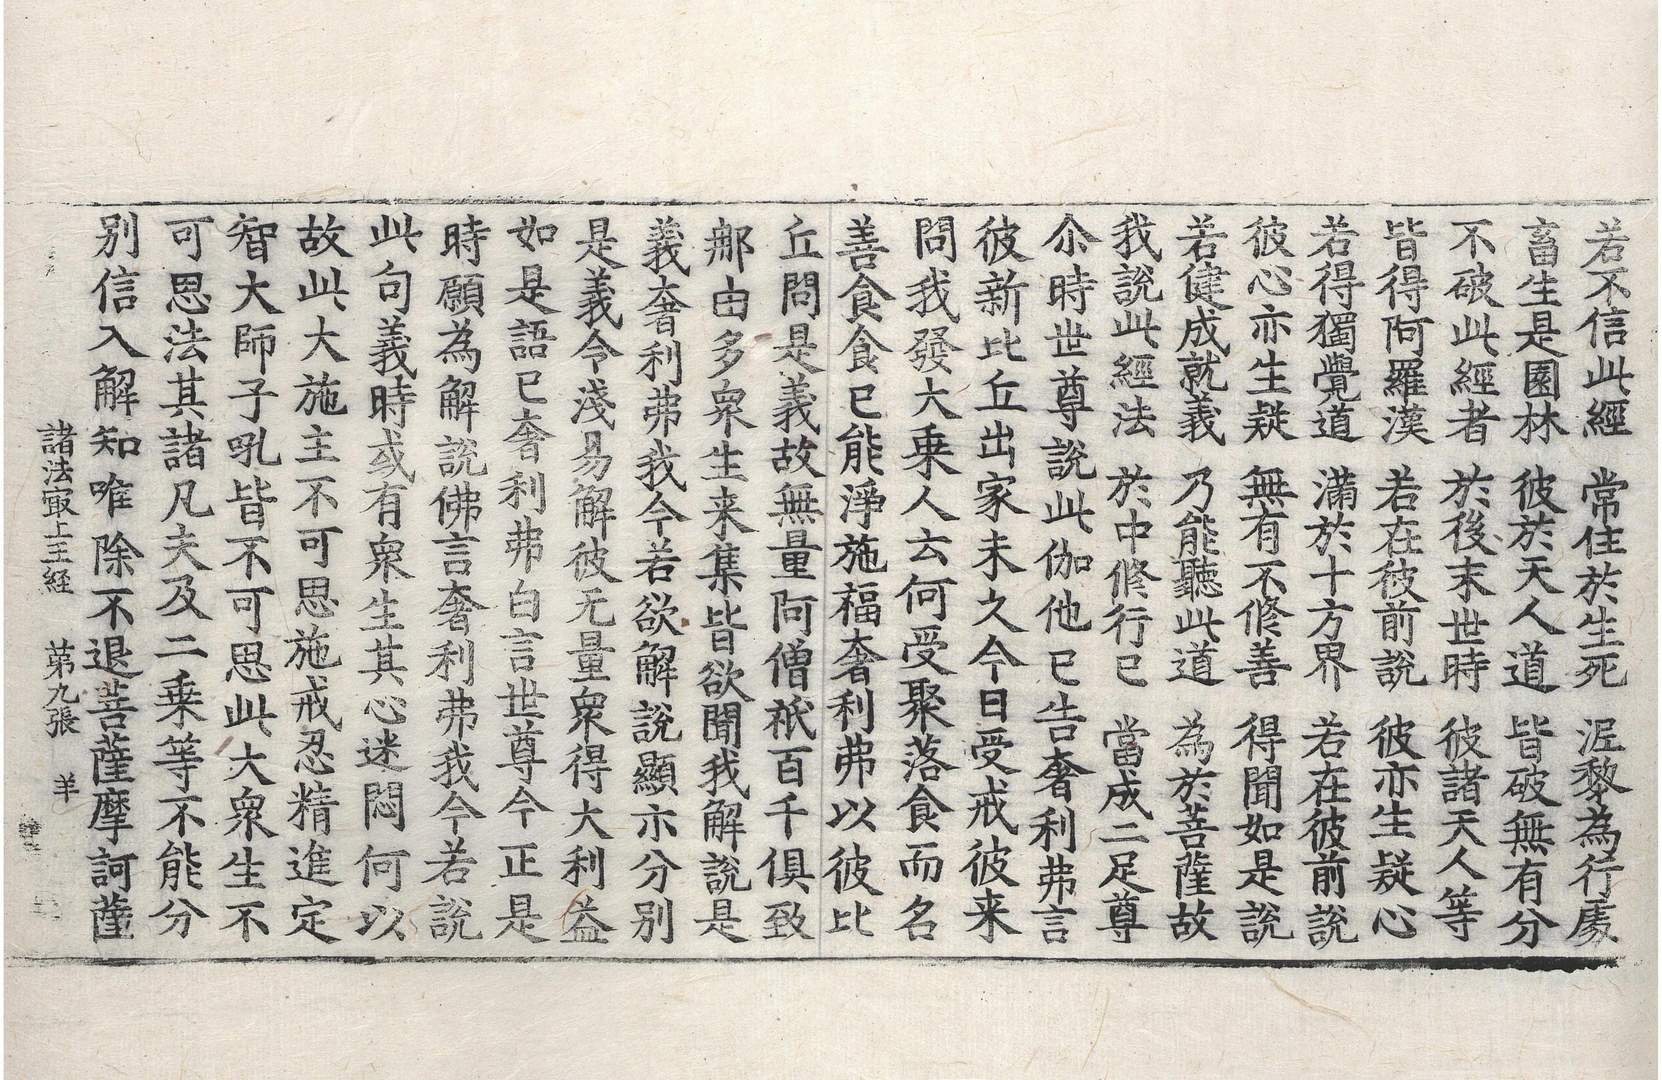 若不信此經　常住於生死　泥黎為行處
畜生是園林　彼於天人道　皆破無有分
不破此經者　於後末世時　彼諸天人等
皆得阿羅漢　若在彼前說　彼亦生疑心
若得獨覺道　滿於十方界　若在彼前說
彼心亦生疑　無有不修善　得聞如是說
若健成就義　乃能聽此道　為於菩薩故
我說此經法　於中修行已　當成二足尊
尒時世尊說此伽他已告奢利弗言
彼新比丘出家未久今日受戒彼来
問我發大乗人云何受聚落食而名
善食食已能淨施福奢利弗以彼比
丘問是義故無量阿僧祇百千俱致
那由多衆生来集皆欲聞我解說是
義奢利弗我今若欲解說顯示分別
是義令淺易解彼无量衆得大利益
如是語已奢利弗白言世尊今正是
時願為解說佛言奢利弗我今若說
此句義時或有衆生其心迷悶何以
故此大施主不可思施戒忍精進定
智大師子吼皆不可思此大衆生不
可思法其諸凡夫及二乗等不能分
別信入解知唯除不退菩薩摩訶薩
諸法冣上王経　第九張　羊